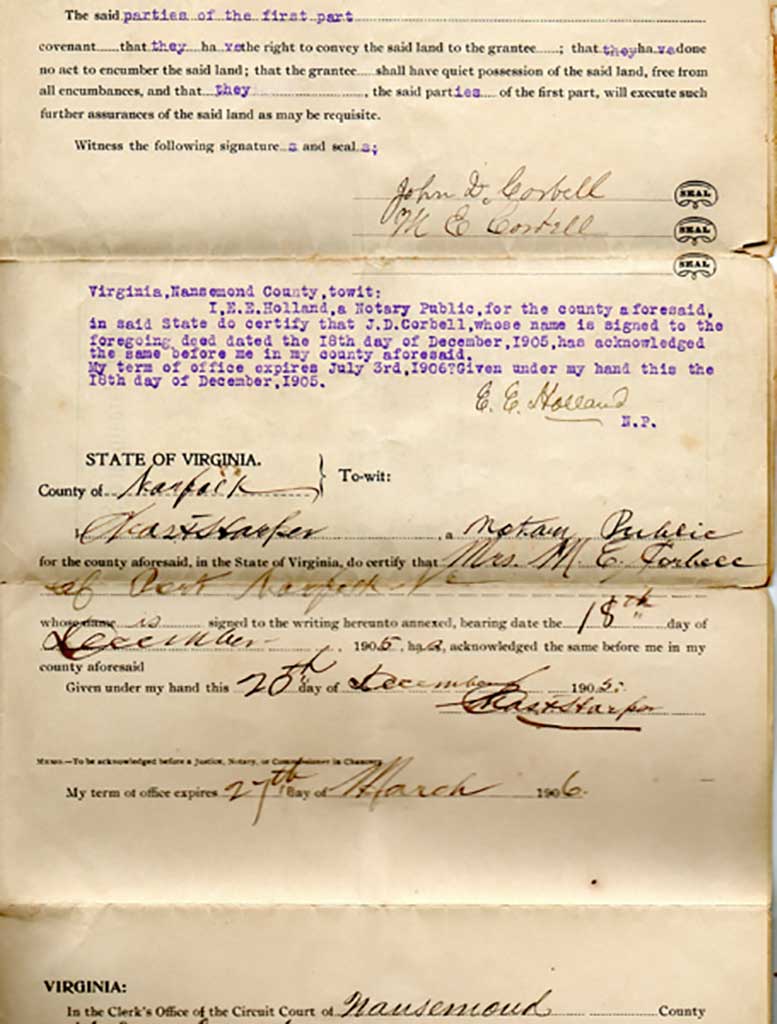 The said parties of the first part
covenant that they ha ve the right to convey the said land to the grantee ; that they ha ve done
no act to encumber the said land; that the grantee shall have quiet possession of the said land, free from
all encumbances, and that they , the said parties of the first part, will execute such
further assurances of the said land as may be requisite.
Witness the following signature s and seal s;
John D. Corbell SEAL
M E Corbell SEAL
SEAL
Virginia, Nansemond County, towit:
I, E.E. Holland, a Notary Public, for the county aforesaid,
in said State do certify that J.D. Corbell, whose name is signed to the
foregoing deed dated the 18th day of December, 1905, has acknowledged
the same before me in my county aforesaid.
My term of office expires July 3rd, 1906? Given under my hand this the
18th day of December, 1905.
E. E. Holland
N.P.
STATE OF VIRGINIA.
County of Norfolk } To-wit:
I Harper , a Notary Public
for the county aforesaid, in the State of Virginia, do certify that Mrs. M. E. Corbell
of Port Norfolk Va
whose name is signed to the writing hereunto annexed, bearing date the 18th day of
December , 1905, has, acknowledged the same before me in my
county aforesaid
Given under my hand this 20th day of December 1905.
Harper
MEMO.—To be acknowledged before a Justice, Notary, or Commissioner in Chancery
My term of office expires 27th day of March 1906.
VIRGINIA:
In the Clerk's Office of the Circuit Court of Nansemond County